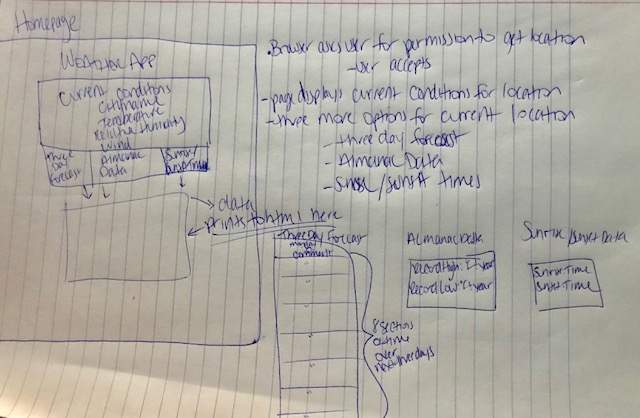 Homepage
Weather App
Current Conditions
City name
Temperature
Relative Humidity
Wind
Three
Day
Forecast
Almanac
Data
Sunrise/
Sunset Times
• Browser asks user for permission to get location
- user accepts
- page displays current conditions for location
- three more options for current location
- three day forecast
- Almanac Data
- Sunrise/sunset times
data
prints to html here
Three Day Forecast
comment
"
"
"
"
"
"
8 sections
of time
over
next three days
Almanac Data
record high: °F + year
record low: °F + year
Sunrise/Sunset Data
Sunrise Time
Sunset Time